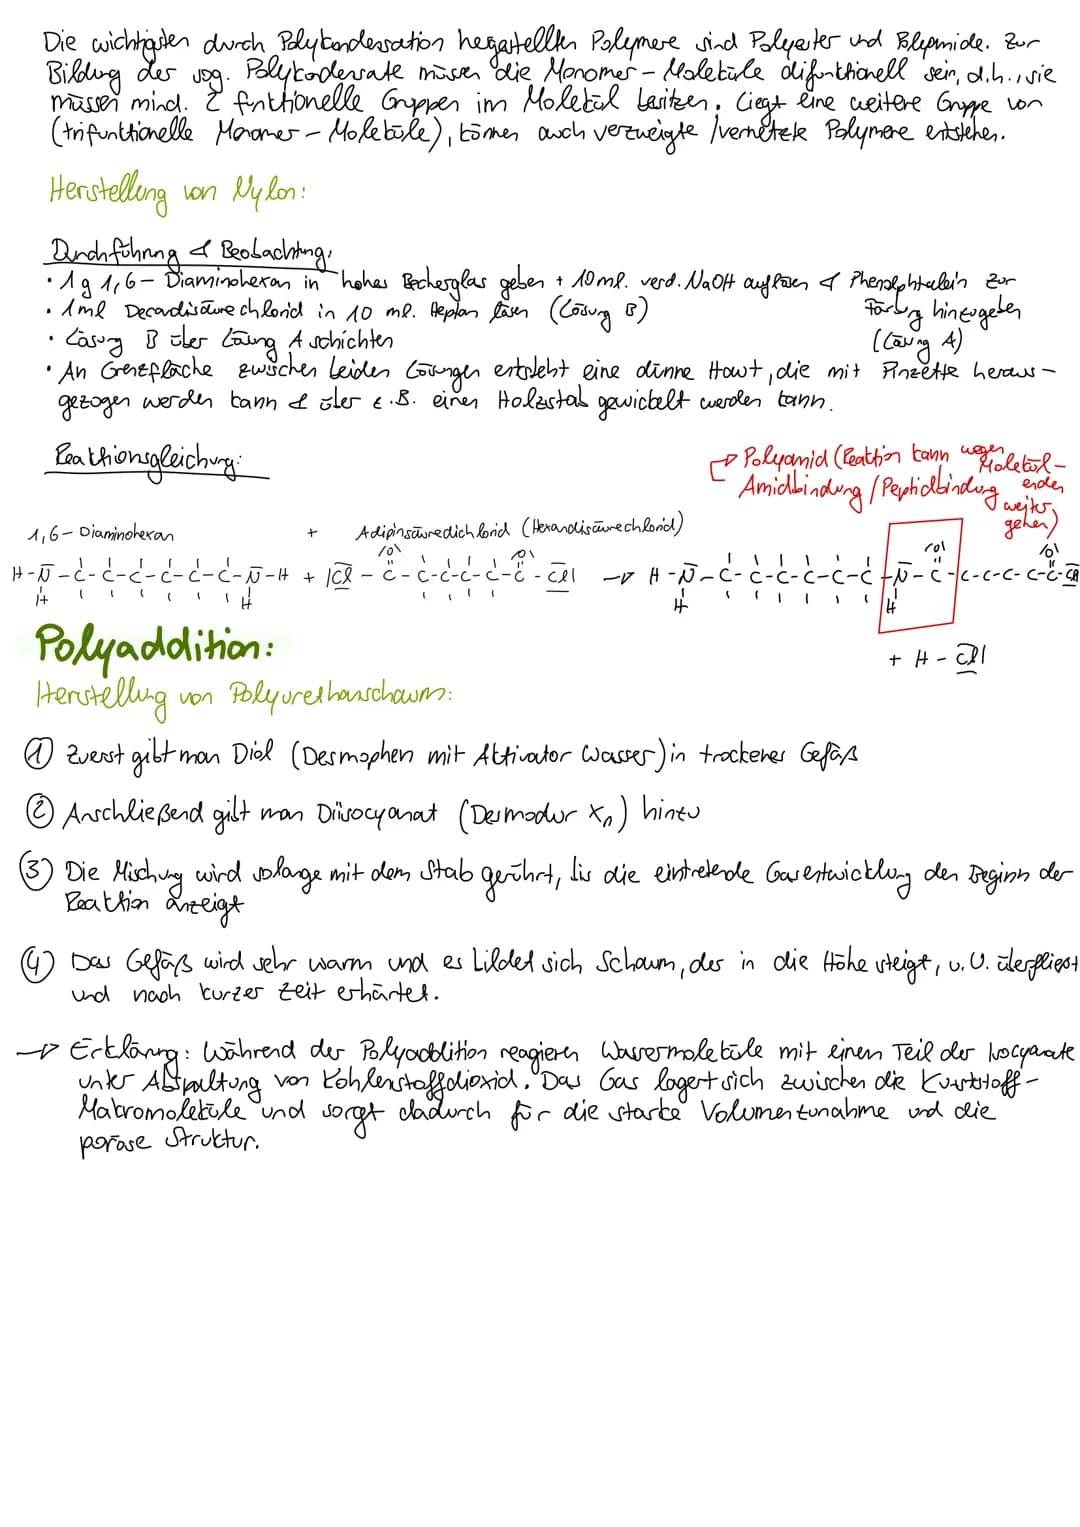 Die wichtigsten durch Polykondensation hergestellten Polymere sind Polyester und Polyamide. Zur
Bildung der sog. Polykondensate müssen die Monomer-Moleküle difunktionell sein, d.h., sie
müssen mind. 2 funktionelle Gruppen im Molekül besitzen. Liegt eine weitere Gruppe vor
(trifunktionelle Monomer-Moleküle), können auch verzweigte/vernetzte Polymere entstehen.
Herstellung von Nylon:
Durchführung & Beobachtung:
• 1g 1,6-Diaminohexan in hohes Becherglas geben + 10 ml. verd. NaOH auflösen & Phenolphthalein zur
Färbung hinzugeben
(Lösung A)
• 1ml Decandisäurechlorid in 10 ml. Heptan lösen (Lösung B)
• Lösung B über Lösung A schichten
• An Grenzfläche zwischen beiden Lösungen entsteht eine dünne Haut, die mit Pinzette heraus-
gezogen werden kann & über z.B. einen Holzstab gewickelt werden kann.
Reaktionsgleichung:
→ Polyamid (Reaktion kann wegen Molekül-
enden weiter gehen)
Amidbindung/Peptidbindung
1,6-Diaminohexan + Adipinsäuredichlorid (Hexandisäurechlorid)
|O| |O| |O| |O|
H-N-C-C-C-C-C-C-N-H + |Cl-C-C-C-C-C-C-Cl| → H-N-C-C-C-C-C-C-N-C-C-C-C-C-C-Cl
H H H H
+ H-Cl|
Polyaddition:
Herstellung von Polyurethanschaum:
① Zuerst gibt man Diol (Desmophen mit Aktivator Wasser) in trockenes Gefäß
② Anschließend gibt man Diisocyanat (Desmodur Xn) hinzu
③ Die Mischung wird solange mit dem Stab gerührt, bis die eintretende Gasentwicklung den Beginn der
Reaktion anzeigt
④ Das Gefäß wird sehr warm und es bildet sich Schaum, der in die Höhe steigt, u.U. überfließt
und nach kurzer Zeit erhärtet.
→ Erklärung: Während der Polyaddition reagieren Wassermoleküle mit einem Teil der Isocyanate
unter Abspaltung von Kohlenstoffdioxid. Das Gas lagert sich zwischen die Kunststoff-
Makromoleküle und sorgt dadurch für die starke Volumenzunahme und die
poröse Struktur.